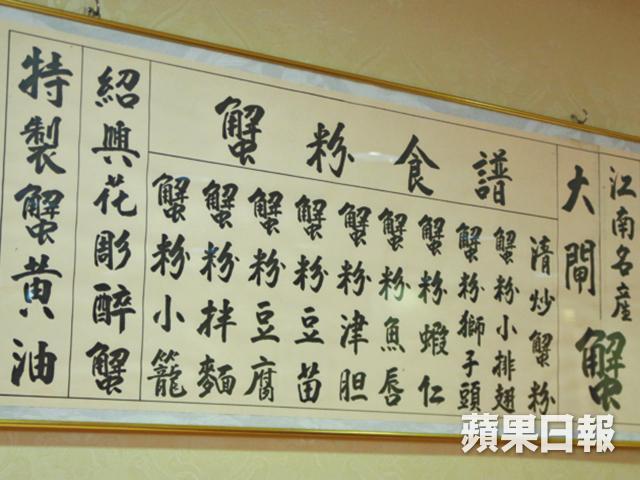 江南名產
大閘蟹
蟹粉食譜
清炒蟹粉
蟹粉小排翅
蟹粉獅子頭
蟹粉蝦仁
蟹粉魚唇
蟹粉津胆
蟹粉豆苗
蟹粉豆腐
蟹粉拌麵
蟹粉小籠
紹興花彫醉蟹
特製蟹黃油
蘋果日報